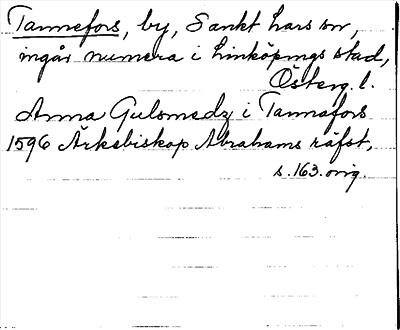 Tannefors, by, Sankt Lars sn,
ingår numera i Linköpings stad,
Österg. l.
Anna Gulsmedz i Tannafors
1596 Ärkebiskop Abrahams räfst,
s. 163. orig.